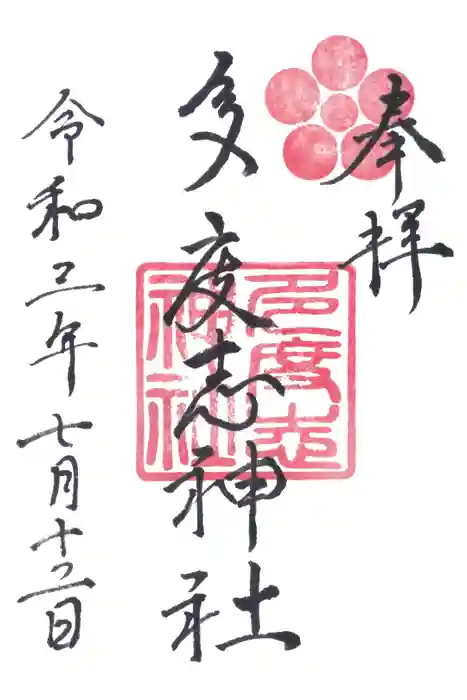 奉拝
多度志神社
多度志
神社
令和三年七月十二日